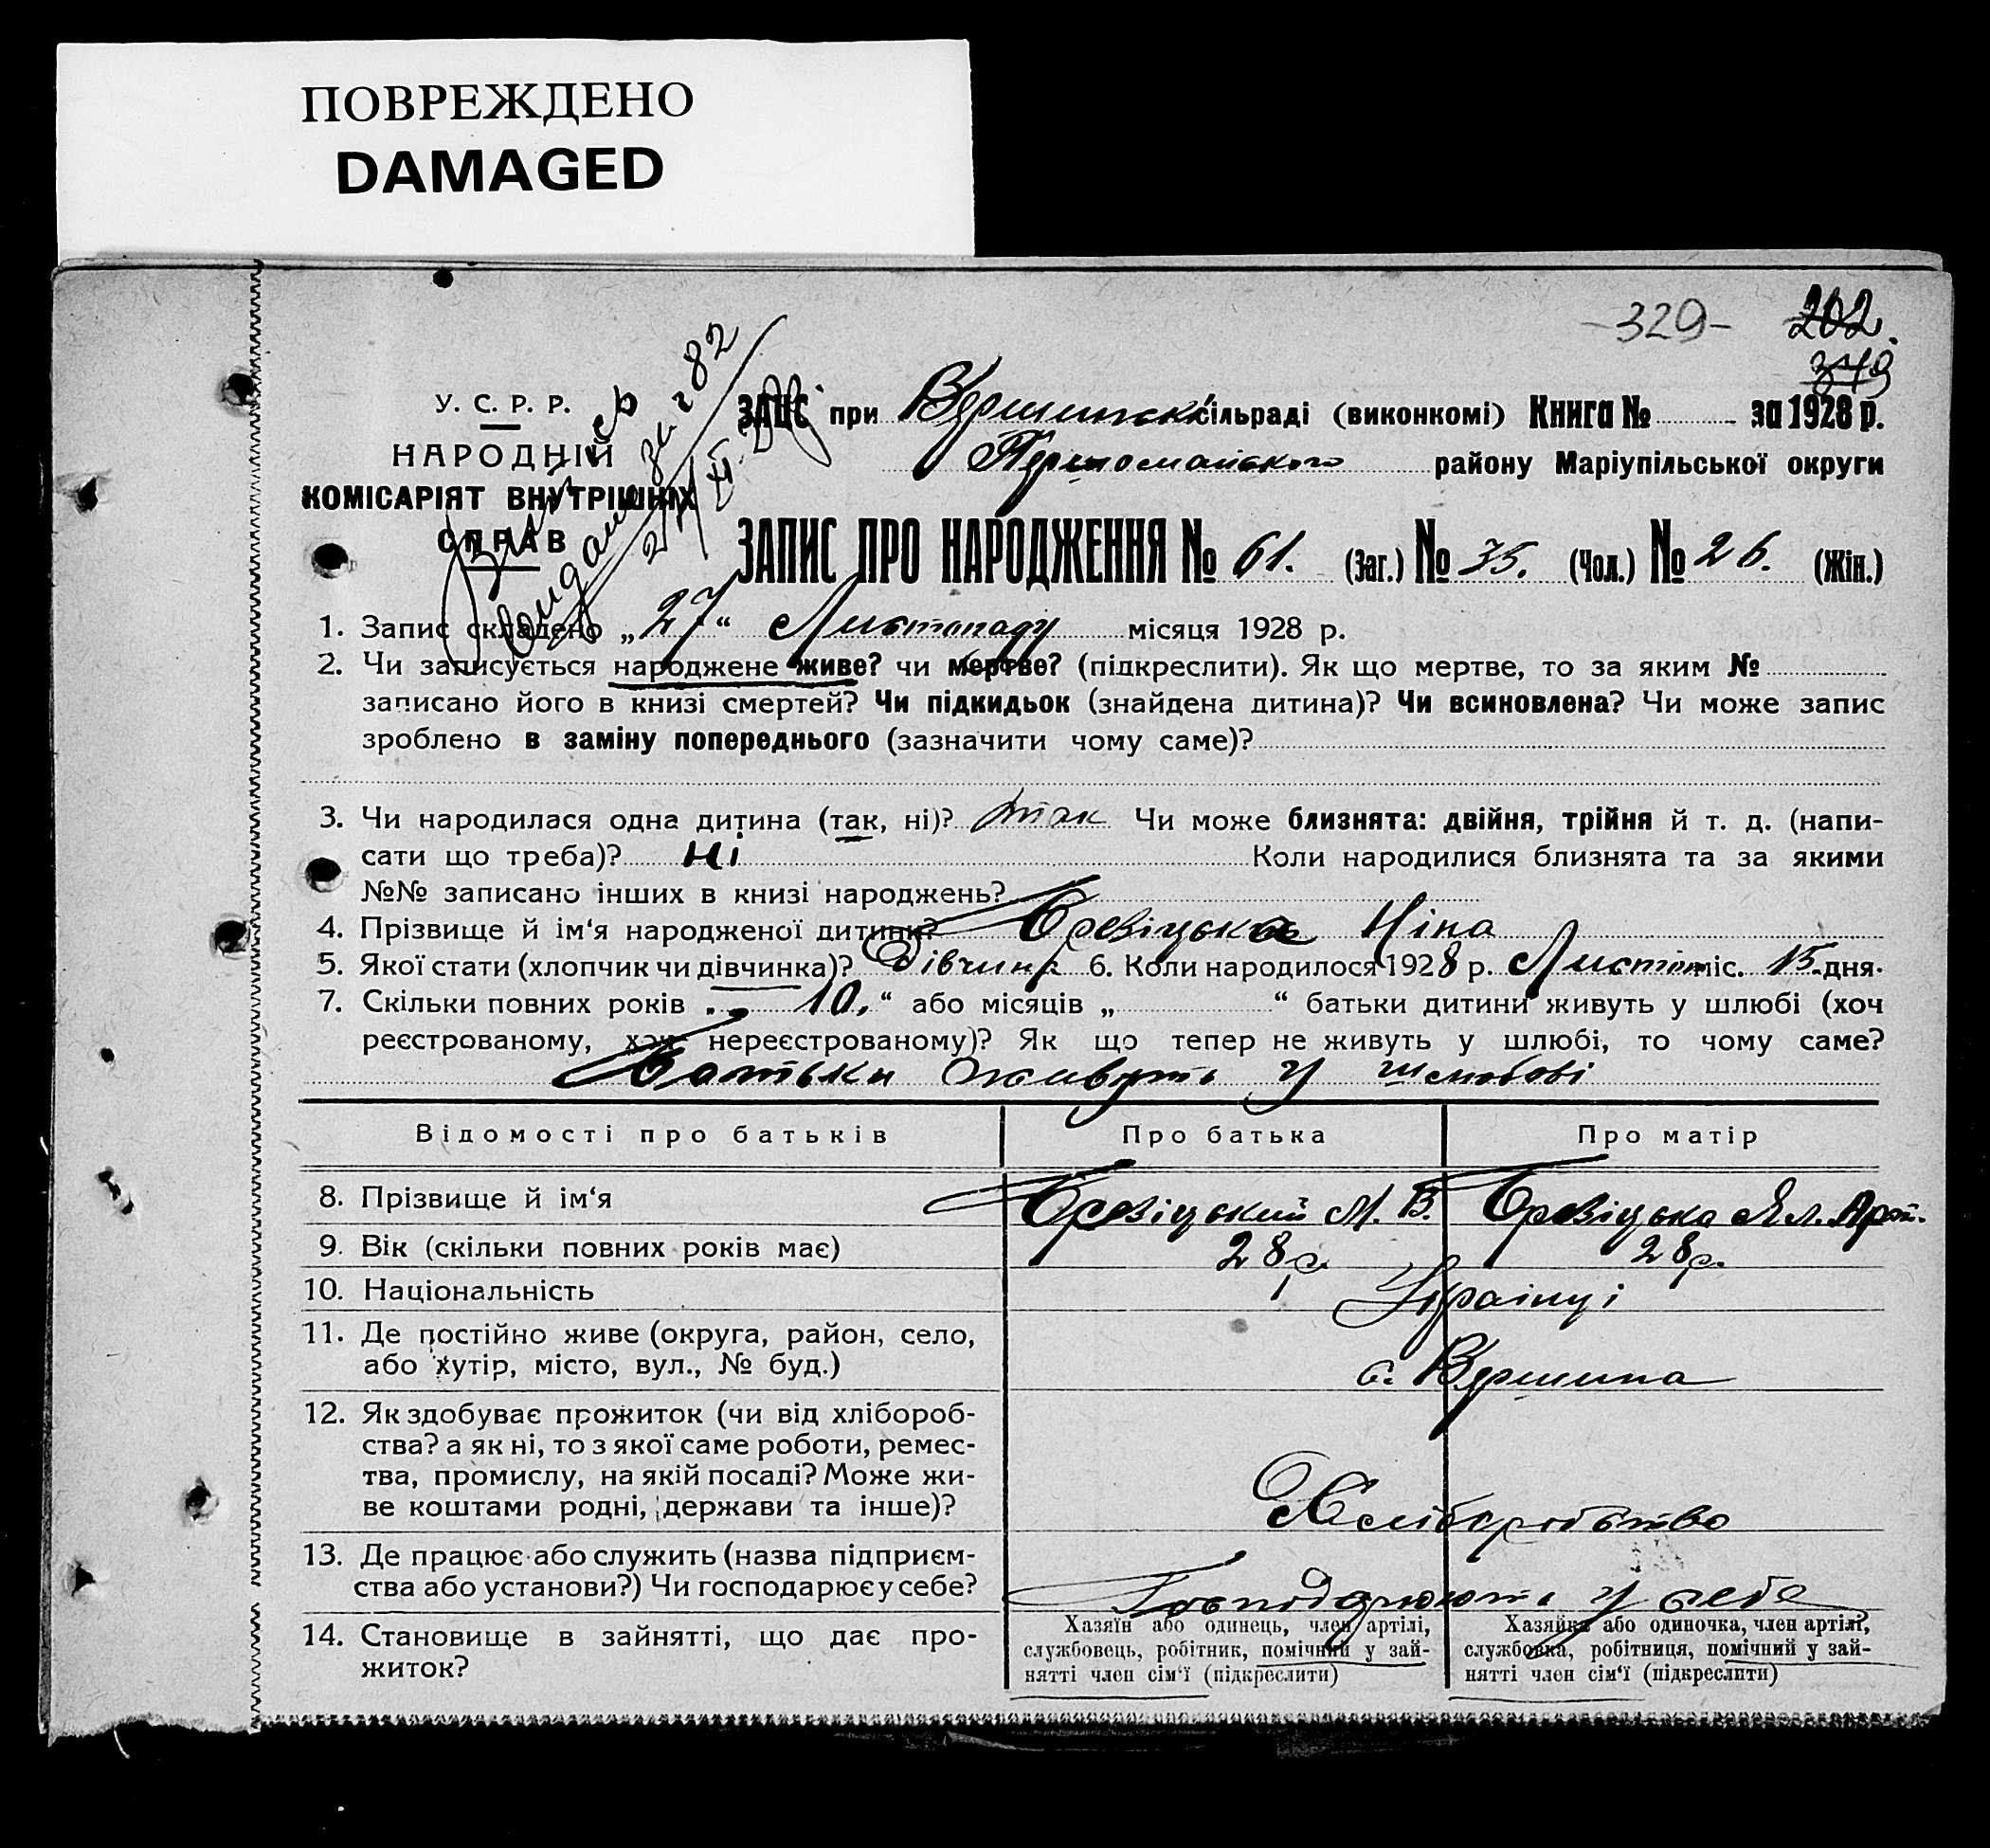 ПОВРЕЖДЕНО
DAMAGED
-329- 202.
349
У. С. Р. Р.
НАРОДНІЙ
КОМІСАРІЯТ ВНУТРІШНІХ
СПРАВ
за № 82
ЗАПС при Вершинскі сільраді (виконкомі) Книга № за 1928 р.
Першомайського району Маріупільської округи
ЗАПИС ПРО НАРОДЖЕННЯ № 61. (Заг.) № 35. (Чол.) № 26. (Жін.)
1. Запис складено „ 27 “ Листопаду місяця 1928 р.
2. Чи записується народжене живе? чи мертве? (підкреслити). Як що мертве, то за яким №
записано його в книзі смертей? Чи підкидьок (знайдена дитина)? Чи всиновлена? Чи може запис
зроблено в заміну попереднього (зазначити чому саме)?
3. Чи народилася одна дитина (так, ні)? так Чи може близнята: двійня, трійня й т. д. (напи-
сати що треба)? Ні Коли народилися близнята та за якими
№№ записано інших в книзі народжень?
4. Прізвище й ім‘я народженої дитини? Ніна
5. Якої стати (хлопчик чи дівчинка)? Дівчина 6. Коли народилося 1928 р. Листоп міс. 15. дня.
7. Скільки повних років „ 10. “ або місяців „ “ батьки дитини живуть у шлюбі (хоч
реєстрованому, хоч нереєстрованому)? Як що тепер не живуть у шлюбі, то чому саме?
Батьки живуть у шлюбові
Відомості про батьків Про батька Про матір
8. Прізвище й ім‘я М. В.
9. Вік (скільки повних років має) 28 р. 28 р.
10. Національність Українці
11. Де постійно живе (округа, район, село,
або хутір, місто, вул., № буд.) с. Вершина
12. Як здобуває прожиток (чи від хлібороб-
ства? а як ні, то з якої саме роботи, ремес-
тва, промислу, на якій посаді? Може жи-
ве коштами родні, держави та інше)? Хліборобство
13. Де працює або служить (назва підприєм-
ства або установи?) Чи господарює у себе? Господарюють у себе
14. Становище в зайнятті, що дає про-
житок?
Хазяїн або одинець, член артілі,
службовець, робітник, помічний у зай-
нятті член сім‘ї (підкреслити)
Хазяйка або одиночка, член артілі,
службовка, робітниця, помічний у зай-
нятті член сім‘ї (підкреслити)